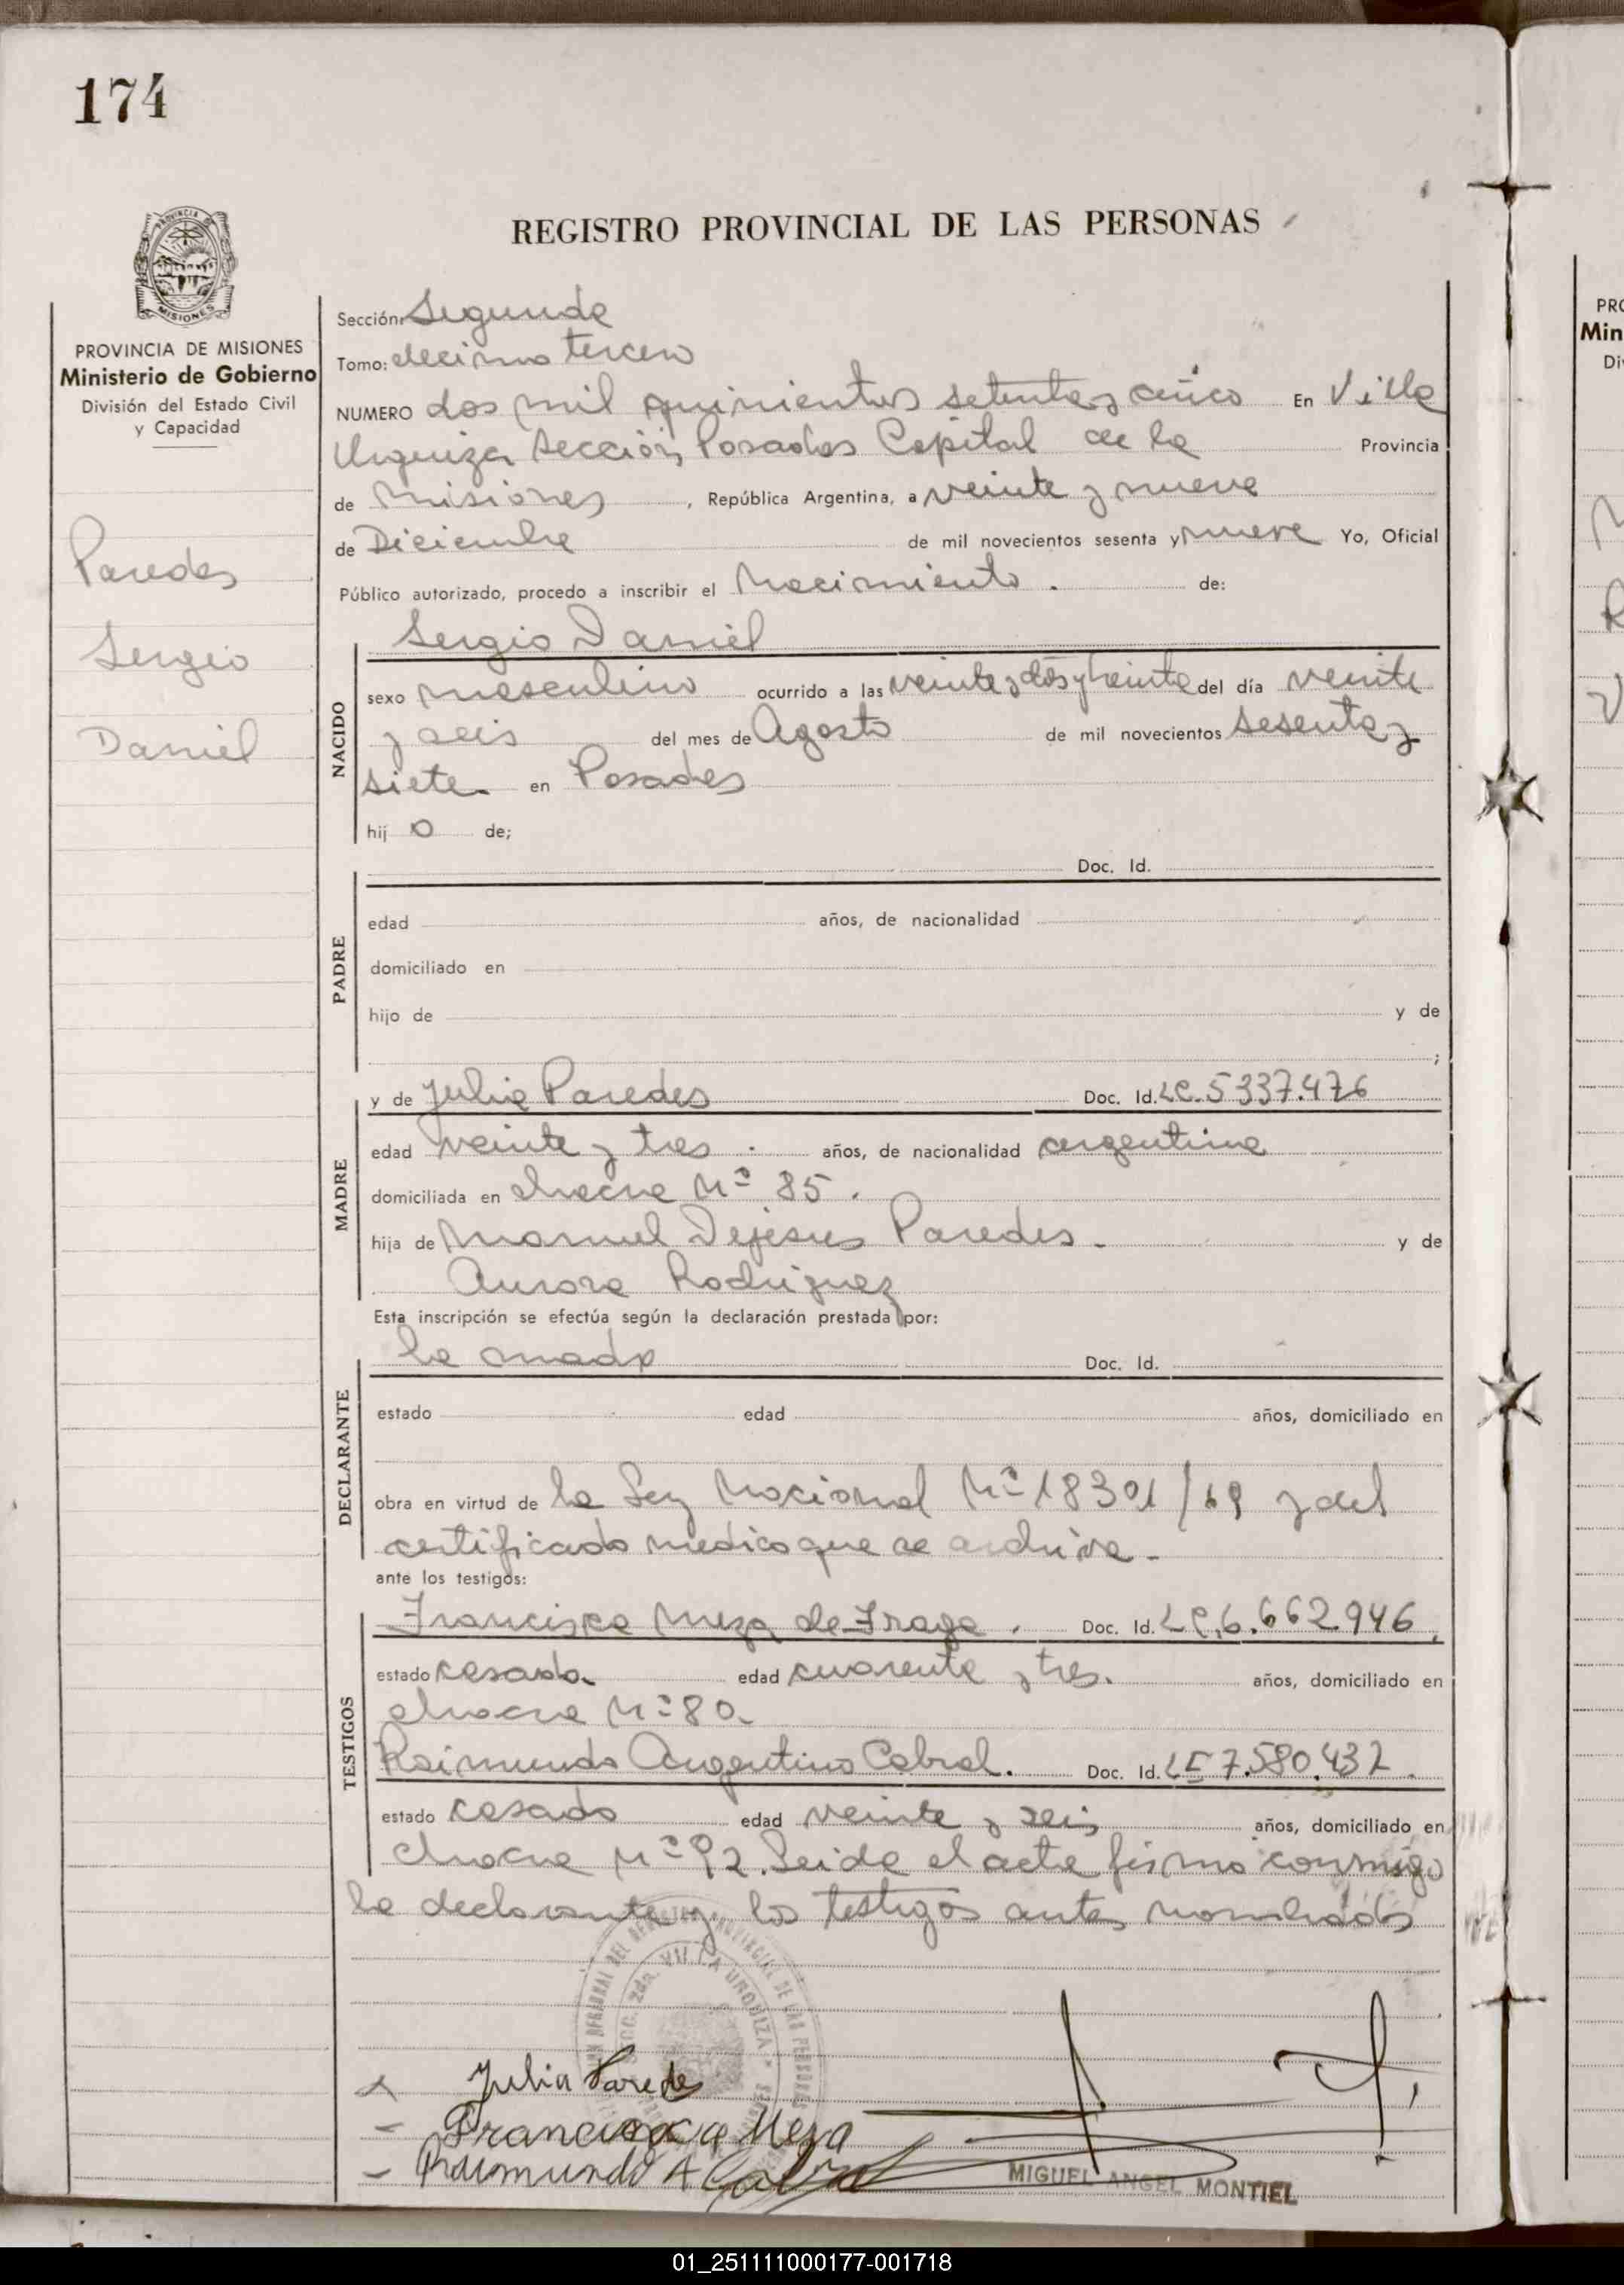 174
REGISTRO PROVINCIAL DE LAS PERSONAS
PROVINCIA DE MISIONES
Ministerio de Gobierno
División del Estado Civil
y Capacidad
Paredes
Sergio
Daniel
Sección: Segunda
Tomo: decimo tercero
NUMERO dos mil quinientos setenta y cinco En Villa
Urquiza Sección Posadas Capital de la Provincia
de Misiones, República Argentina, a veinte y nueve
de Diciembre de mil novecientos sesenta y nueve Yo, Oficial
Público autorizado, procedo a inscribir el Nacimiento. de:
Sergio Daniel
NACIDO
sexo masculino ocurrido a las veinte y dos y treinta del día veinte
y seis del mes de Agosto de mil novecientos sesenta y
siete. en Posadas
hij o de;
Doc. Id.
PADRE
edad años, de nacionalidad
domiciliado en
hijo de y de
;
y de Julia Paredes Doc. Id. LC. 5337.476
MADRE
edad veinte y tres. años, de nacionalidad argentina
domiciliada en chacra Nº 85.
hija de Manuel Dejesus Paredes. y de
Aurora Rodriguez
Esta inscripción se efectúa según la declaración prestada por:
la madre Doc. Id.
DECLARANTE
estado edad años, domiciliado en
obra en virtud de la Ley Nacional Nº 18301/69 y del
certificado medico que se archiva.
ante los testigos:
Francisca Meza de Fraga. Doc. Id. LC. 6.662946.
TESTIGOS
estado casada edad cuarenta y tres. años, domiciliado en
chacra Nº 80.
Raimundo Argentino Cabral. Doc. Id. LE 7.580.437.
estado casado edad veinte y seis años, domiciliado en
chacra Nº 92. Leida el acta firma conmigo
la declarante y los testigos antes nombrados
Julia Paredes
Francisca Meza
Raimundo A Cabral
MIGUEL ANGEL MONTIEL
01_251111000177-001718